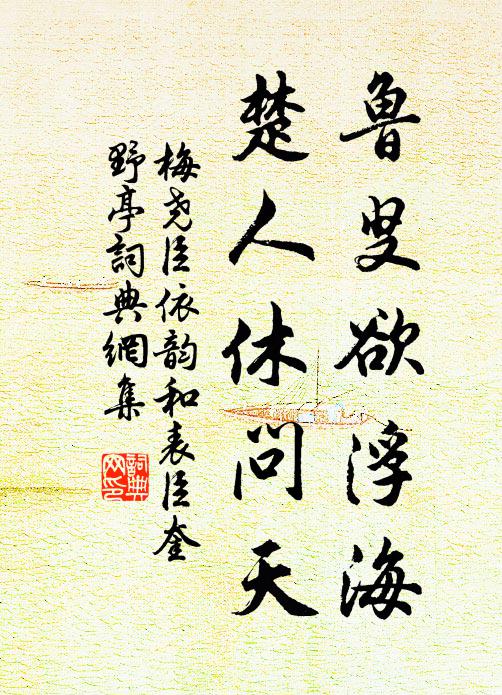 魯叟欲浮海
楚人休問天
梅尧臣依韵和表臣奎
野亭詞典網集
詞典
网印